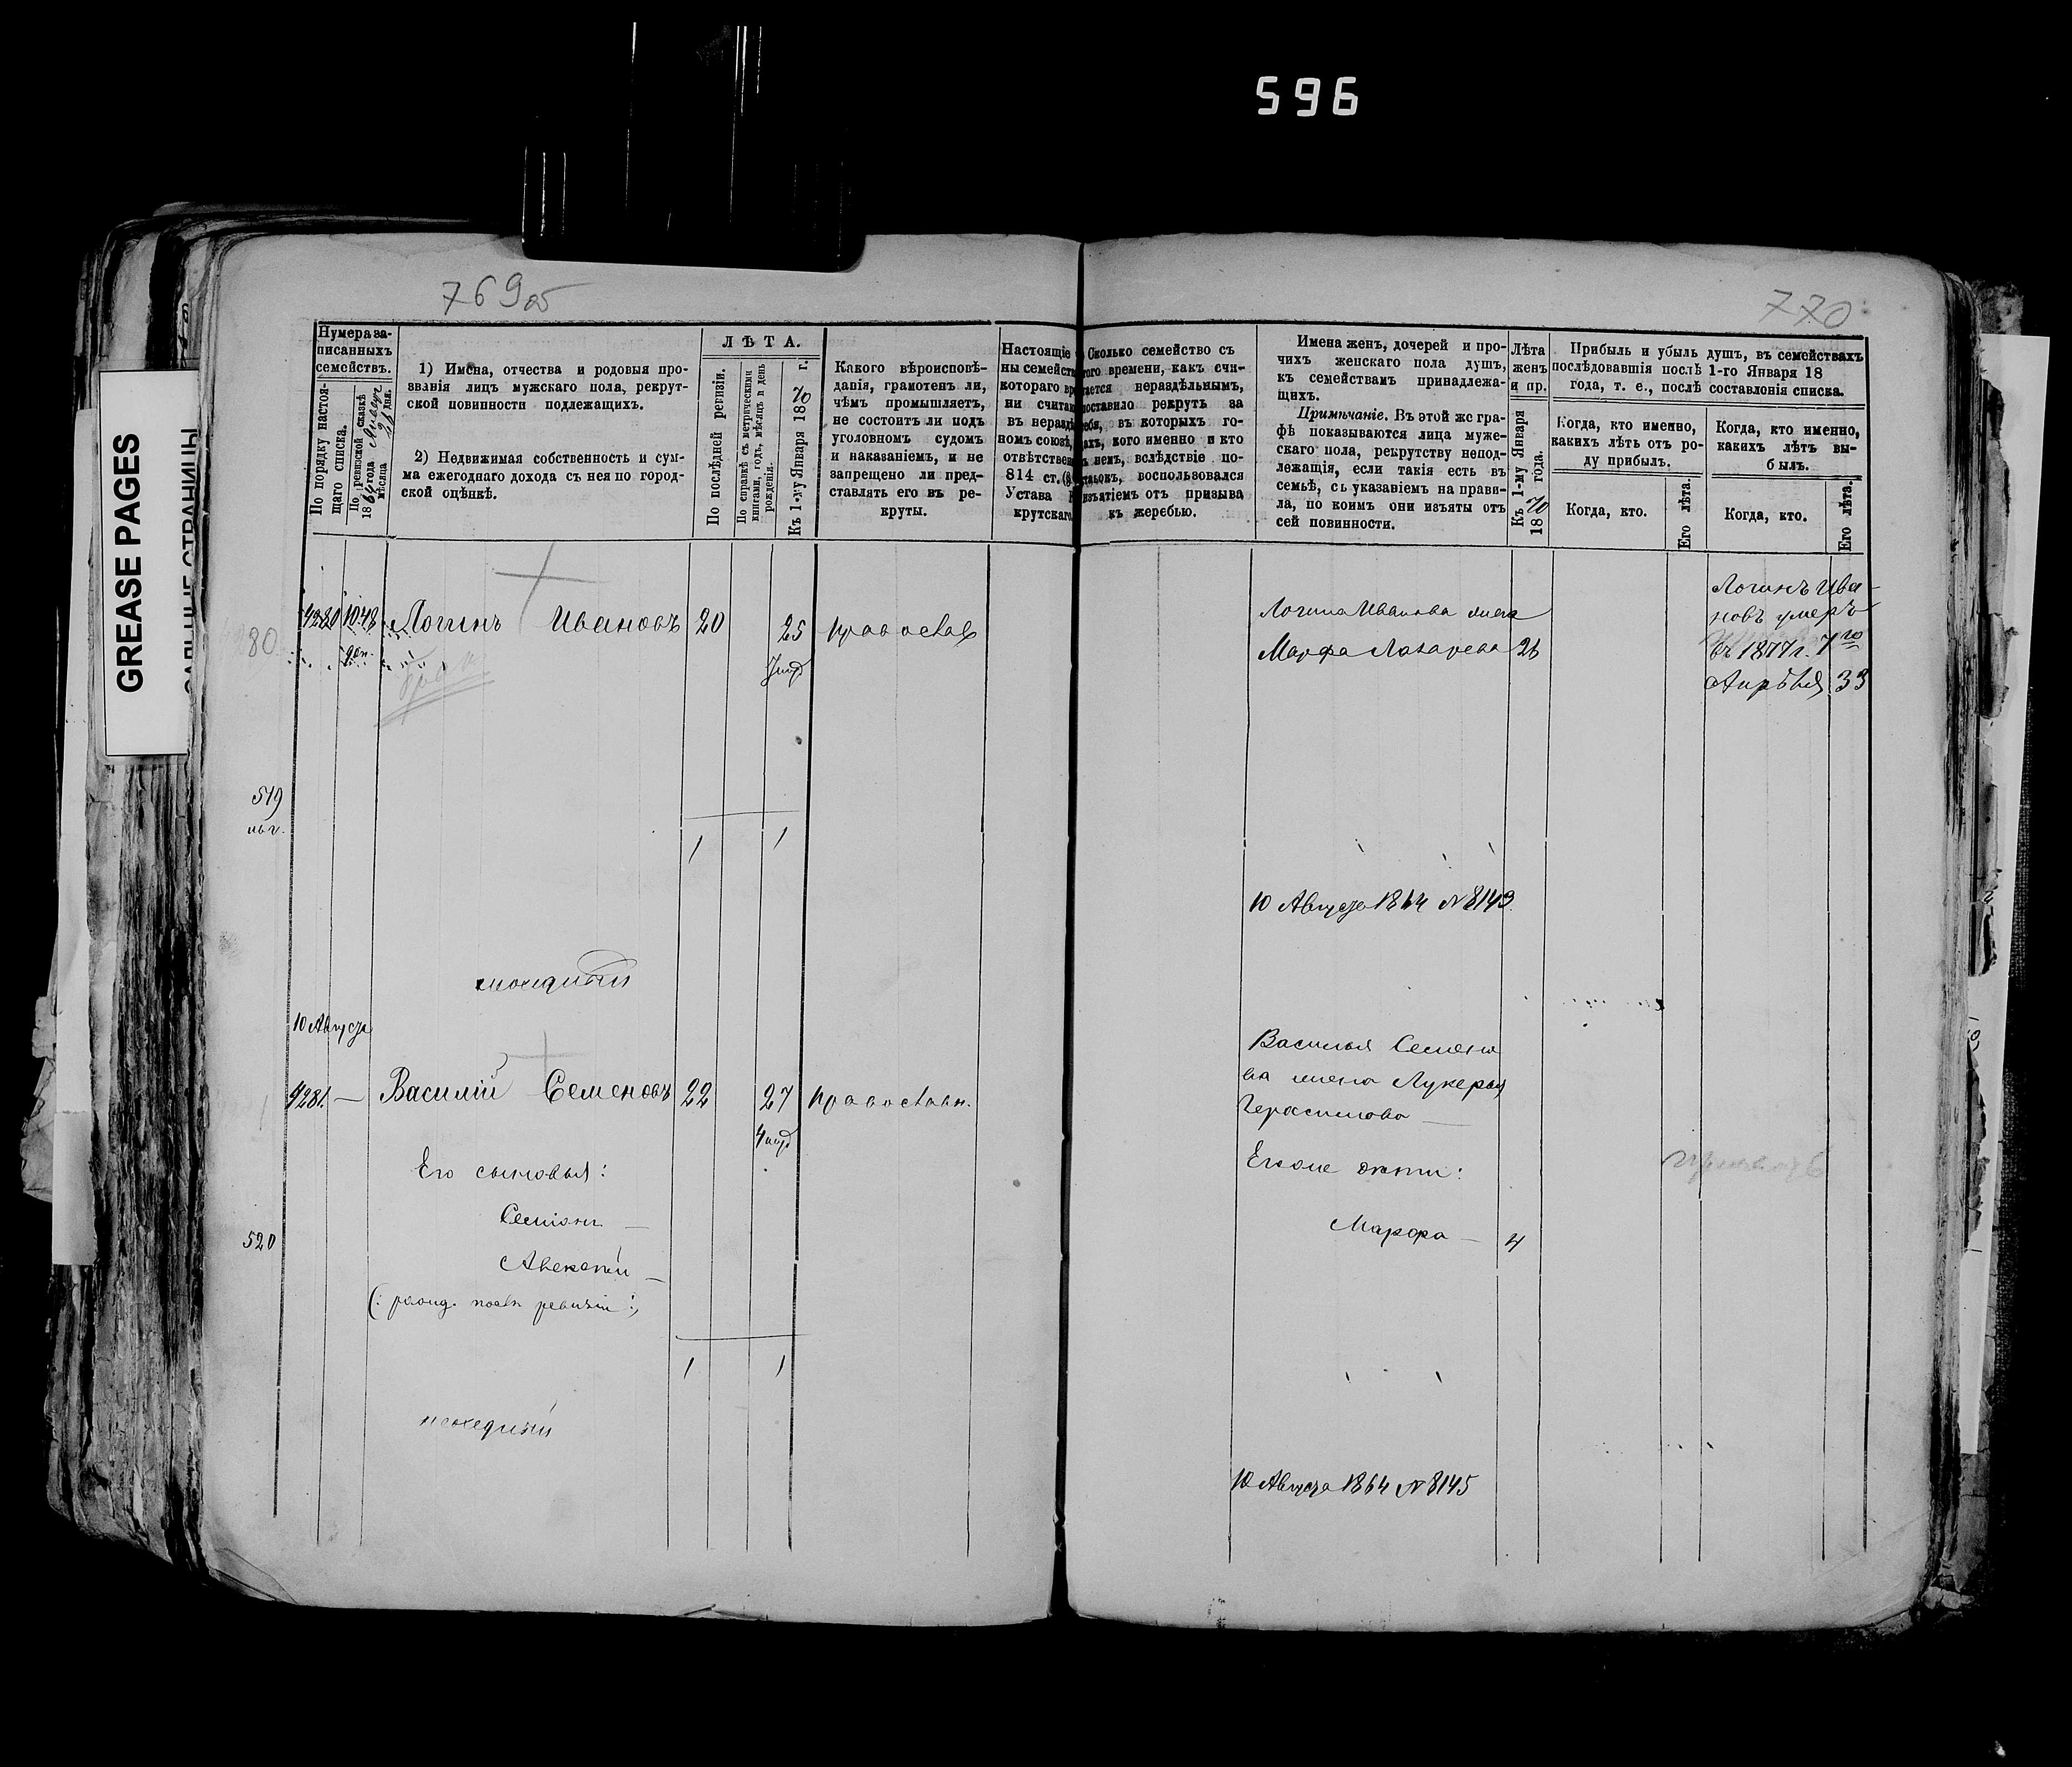 596
GREASE PAGES
769 об
770
Нумера за-
писанныхъ
семействъ.
По порядку настоя-
щаго списка.
По ревизской сказкѣ
1864 года
мѣсяца дня.
1) Имена, отчества и родовыя про-
званія лицъ мужскаго пола, рекрут-
ской повинности подлежащихъ.
2) Недвижимая собственность и сум-
ма ежегоднаго дохода съ нея по город-
ской оцѣнкѣ.
ЛѢТА.
По послѣдней ревизіи.
По справкѣ съ метрическими
книгами, годъ, мѣсяцъ и день
рожденія.
Къ 1-му Января 1870 г.
Какого вѣроисповѣ-
данія, грамотенъ ли,
чѣмъ промышляетъ,
не состоитъ ли подъ
уголовномъ судомъ
и наказаніемъ, и не
запрещено ли пред-
ставлять его въ ре-
круты.
Настоящіе
ны семейст
котораго вр
ни считаю
въ неразд
номъ союзѣ,
отвѣтствен
814 ст.
Устава
крутскаго
Сколько семейство съ
того времени, какъ счи-
тается нераздѣльнымъ,
поставило рекрутъ за
себя, въ которыхъ го-
дахъ, кого именно и кто
въ немъ, вслѣдствіе по-
воспользовался
изъятіемъ отъ призыва
къ жеребью.
Имена женъ, дочерей и про-
чихъ женскаго пола душъ,
къ семействамъ принадлежа-
щихъ.
Примѣчаніе. Въ этой же гра-
фѣ показываются лица муже-
скаго пола, рекрутству непод-
лежащія, если такія есть въ
семьѣ, съ указаніемъ на прави-
ла, по коимъ они изъяты отъ
сей повинности.
Лѣта
женъ
и пр.
Къ 1-му Января
1870 года.
Прибыль и убыль душъ, въ семействахъ
послѣдовавшія послѣ 1-го Января 18
года, т. е., послѣ составленія списка.
Когда, кто именно,
какихъ лѣтъ отъ ро-
ду прибылъ.
Когда, кто именно,
какихъ лѣтъ вы-
былъ.
Когда, кто.
Его лѣта.
Когда, кто.
Его лѣта.
80
4280 1048 Логинъ Ивановъ 20 25 православ
доп.
Логина Иванова жена
Марфа Лазарева 26
Логинъ Ива-
новъ умеръ
въ 1877 г. 7го
Апрѣля 33
519
1 1
10 Августа 1864 № 8143
10 Августа
4281. — Василій Семеновъ 22 27 православн.
Василья Семено
ва жена Лукерья
Герасимова —
Его сыновья:
Семіонъ —
Алексѣй —
(: рожд. послѣ ревизіи :)
Ихъ же дѣти:
Марфа — 4
520
1 1
10 Августа 1864 № 8145